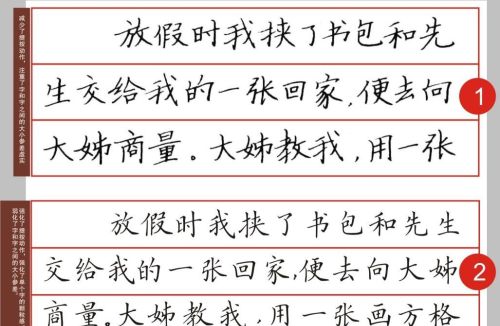 减少了提按动作，注重了字和字之间的大小参差虚实
放假时我挟了书包和先
生交给我的一张回家，便去向
大姊商量。大姊教我，用一张
1
强化了提按动作，强化了单个字的颗粒感
弱化了字和字之间的大小参差，
放假时我挟了书包和先生
交给我的一张回家，便去向大姊
商量。大姊教我，用一张画方格
2